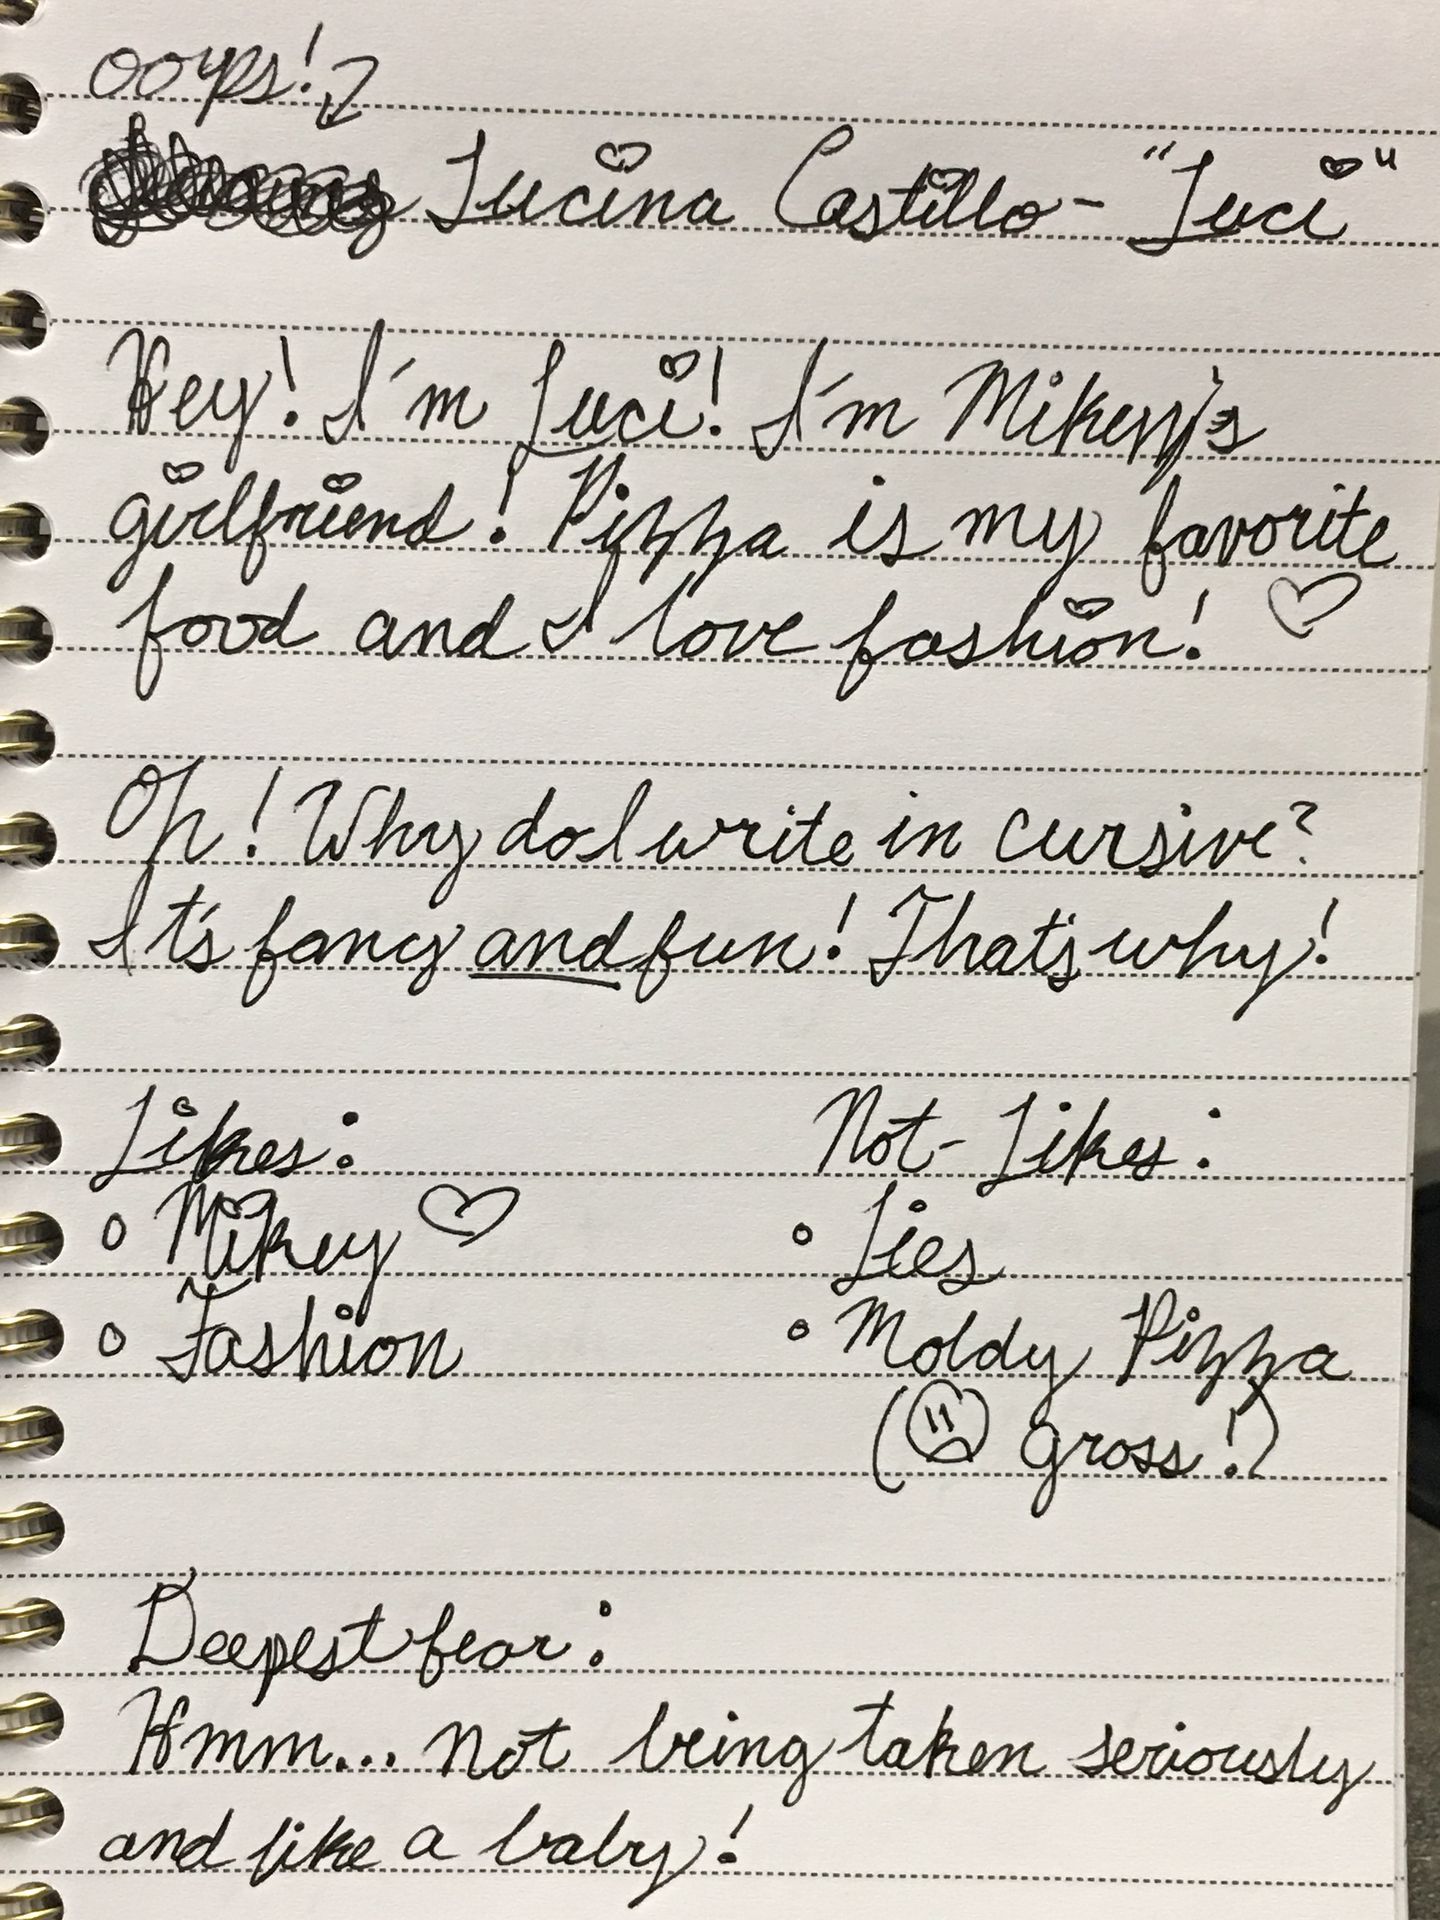 oops!
Lucina Castillo - "Luci"
Hey! I'm Luci! I'm Mikey's
girlfriend! Pizza is my favorite
food and I love fashion! ♡
Oh! Why do I write in cursive?
It's fancy and fun! That's why!
Likes: Not-Likes:
o Mikey ♡ o Lies
o Fashion o Moldy Pizza
(☹ gross!)
Deepest fear:
Hmm... not being taken seriously
and like a baby!